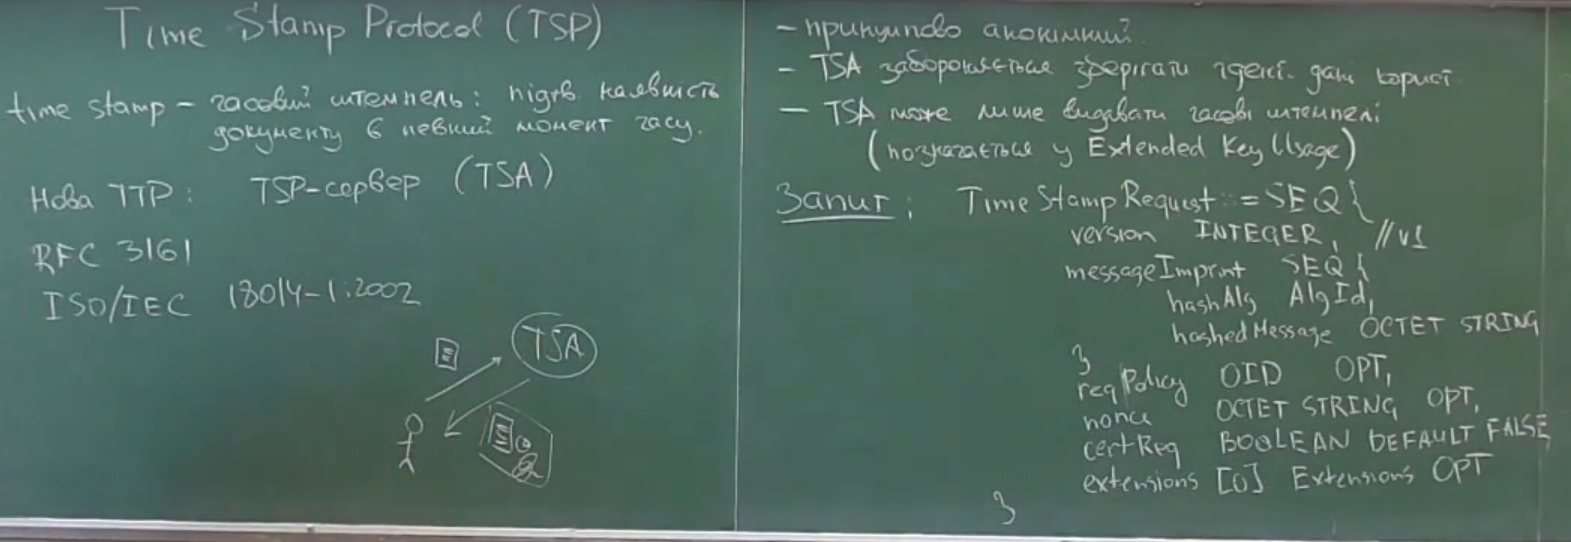 Time Stamp Protocol (TSP)
time stamp – часовий штемпель: підтв. наявність
документу в певний момент часу.
Нова ТТР: TSP-сервер (TSA)
RFC 3161
ISO/IEC 18014-1:2002
TSA
– принципово анонімний.
– TSA забороняється зберігати ідент. дані корист.
– TSA може лише видавати часові штемпелі
(позначається у Extended Key Usage)
Запит: TimeStampRequest ::= SEQ {
version INTEGER, //v1
messageImprint SEQ {
hashAlg AlgId,
hashedMessage OCTET STRING
}
reqPolicy OID OPT,
nonce OCTET STRING OPT,
certReq BOOLEAN DEFAULT FALSE,
extensions [0] Extensions OPT
}